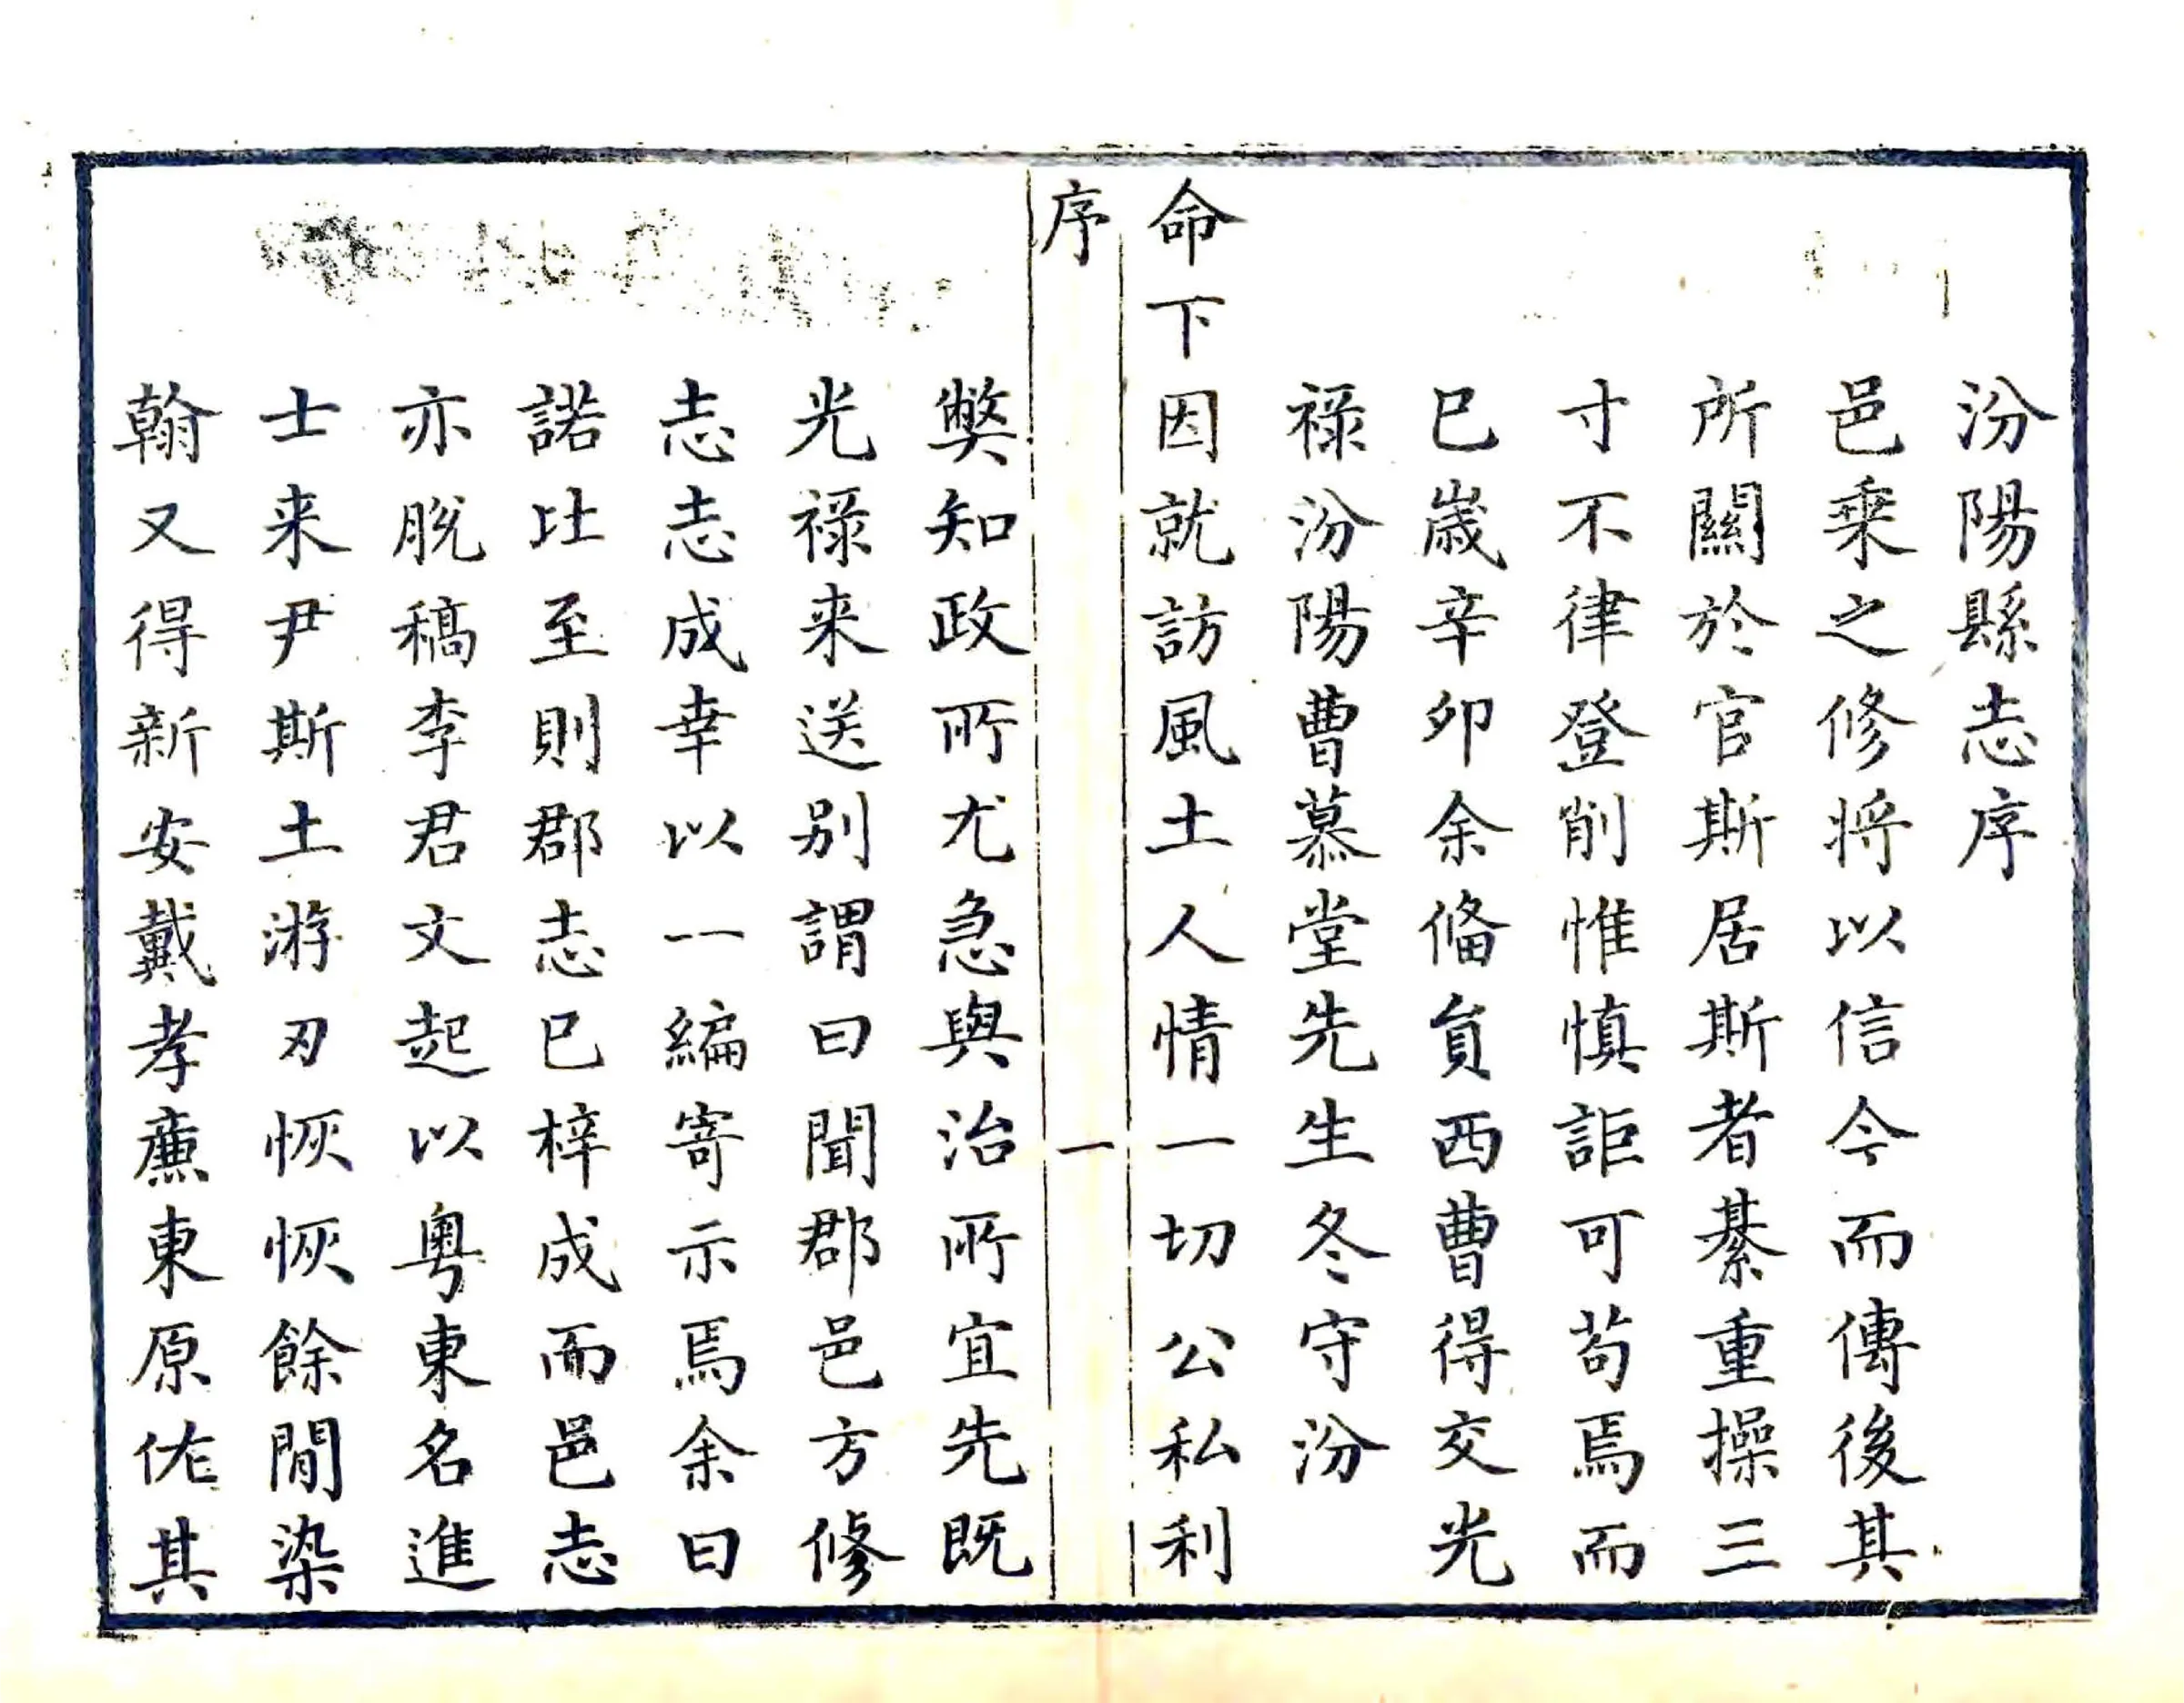 汾陽縣志序
邑乗之修將以信今而傳後其
所關於官斯居斯者綦重操三
寸不律登削惟慎詎可苟焉而
已歲辛卯余偹貟西曹得交光
祿汾陽曹慕堂先生冬守汾
命下因就訪風土人情一切公私利
序
一
獘知政所尤急與治所宜先既
光祿来送別謂曰聞郡邑方修
志志成幸以一編寄示焉余曰
諾比至則郡志已梓成而邑志
亦脫稿李君文起以粤東名進
士来尹斯土游刃恢恢餘閒染
翰又得新安戴孝廉東原佐其